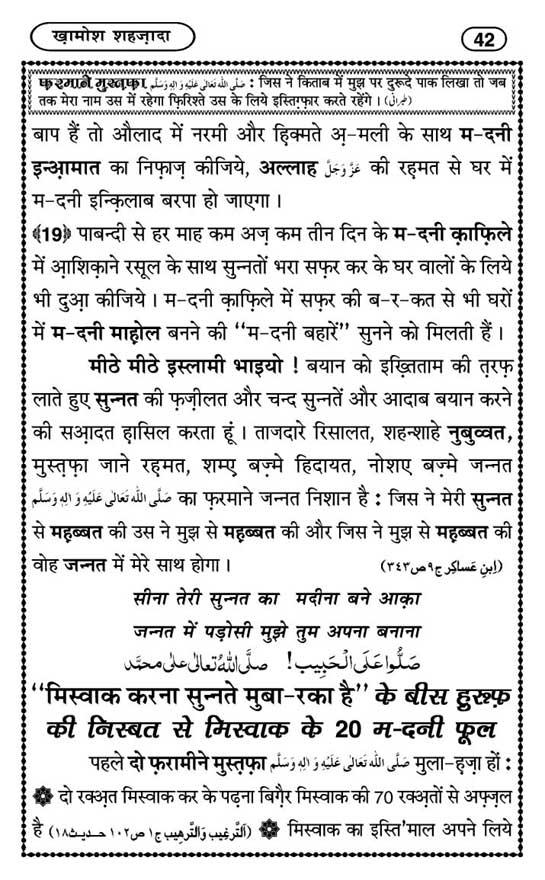 ख़ामोश शहज़ादा
42
फ़रमाने मुस्तफ़ा صَلَّى اللّٰهُ تَعَالٰى عَلَيْهِ وَاٰلِهٖ وَسَلَّم : जिस ने किताब में मुझ पर दुरूदे पाक लिखा तो जब
तक मेरा नाम उस में रहेगा फ़िरिश्ते उस के लिये इस्तिग़्फ़ार करते रहेंगे । (طبرانی)
बाप हैं तो औलाद में नरमी और हिक्मते अ़-मली के साथ म-दनी
इन्आ़मात का निफ़ाज़ कीजिये, अल्लाह عَزَّ وَجَلَّ की रह़मत से घर में
म-दनी इन्क़िलाब बरपा हो जाएगा ।
﴾19﴿ पाबन्दी से हर माह कम अज़ कम तीन दिन के म-दनी क़ाफ़िले
में आ़शिक़ाने रसूल के साथ सुन्नतों भरा सफ़र कर के घर वालों के लिये
भी दुआ़ कीजिये । म-दनी क़ाफ़िले में सफ़र की ब-र-कत से भी घरों
में म-दनी माह़ोल बनने की “म-दनी बहारें” सुनने को मिलती हैं ।
मीठे मीठे इस्लामी भाइयो ! बयान को इख़्तिताम की त़रफ़
लाते हुए सुन्नत की फ़ज़ीलत और चन्द सुन्नतें और आदाब बयान करने
की सआ़दत ह़ासिल करता हूं । ताजदारे रिसालत, शहन्शाहे नुबुव्वत,
मुस्त़फ़ा जाने रह़मत, शम्ए़ बज़्मे हिदायत, नोशए बज़्मे जन्नत
صَلَّى اللّٰهُ تَعَالٰى عَلَيْهِ وَاٰلِهٖ وَسَلَّم का फ़रमाने जन्नत निशान है : जिस ने मेरी सुन्नत
से मह़ब्बत की उस ने मुझ से मह़ब्बत की और जिस ने मुझ से मह़ब्बत की
वोह जन्नत में मेरे साथ होगा । (اِبنِ عَساکِر ج٩ص٣٤٣)
सीना तेरी सुन्नत का मदीना बने आक़ा
जन्नत में पड़ोसी मुझे तुम अपना बनाना
صَلُّوا عَلَى الْحَبِيب ! صلَّى اللّٰهُ تعالٰى على محمَّد
“मिस्वाक करना सुन्नते मुबा-रका है” के बीस हुरूफ़
की निस्बत से मिस्वाक के 20 म-दनी फूल
पहले दो फ़रामीने मुस्त़फ़ा صَلَّى اللّٰهُ تَعَالٰى عَلَيْهِ وَاٰلِهٖ وَسَلَّم मुला-ह़ज़ा हों :
दो रक्अ़त मिस्वाक कर के पढ़ना बिग़ैर मिस्वाक की 70 रक्अ़तों से अफ़्ज़ल
है (اَلتَّرغِيب وَالتَّرهِيب ج١ ص١٠٢ حدیث١٨) मिस्वाक का इस्ति'माल अपने लिये